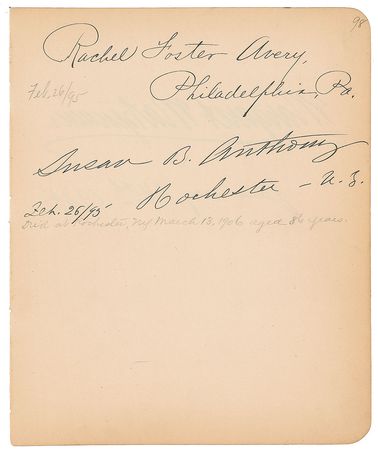 98
Rachel Foster Avery,
Feb. 26/95
Philadelphia, Pa.
Susan B. Anthony
Rochester - N. Y.
Feb. 26/95
Died at Rochester, N.Y. March 13, 1906 aged 86 years.